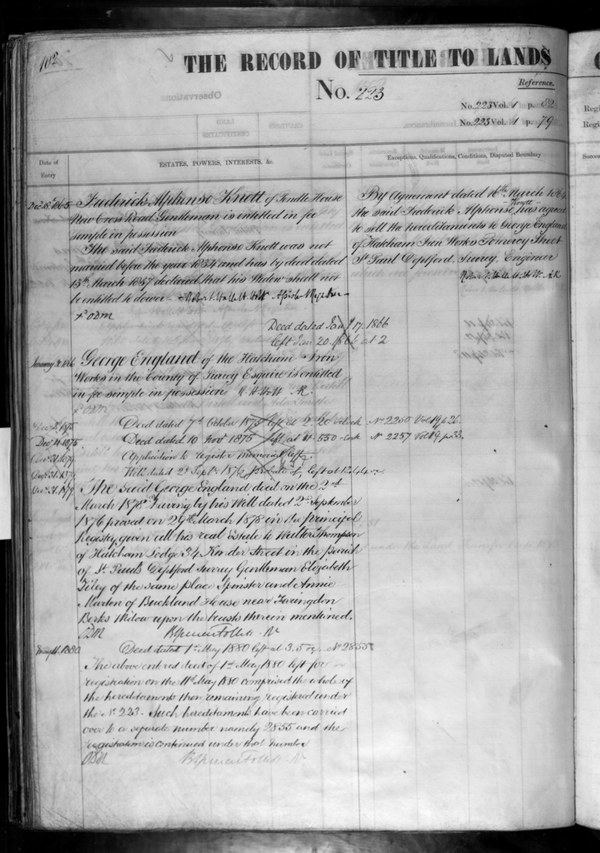 102
THE RECORD OF TITLE TO LANDS
No. 223
Reference.
No. 223 Vol. 1 p. 82
No. 223 Vol. 1 p. 79
Date of Entry
ESTATES, POWERS, INTERESTS, &c.
Exceptions, Qualifications, Conditions, Disputed Boundary
1865
Frederick Alphonse Knott of Kindle House
New Cross Road Gentleman is entitled in fee
simple in possession
The said Frederick Alphonse Knott was not
married before the year 1834 and has by deed dated
13th March 1857 declared that his Widow shall not
be entitled to dower
By Agreement dated 16th March 1864
the said Frederick Alphonse Knott has agreed
to sell the hereditaments to George England
of Hatcham Iron Works Pomeroy Street
St Paul Deptford Surrey, Engineer
Deed dated Jany 17. 1866
left Jan 20 at 2
George England of the Hatcham Iron
Works in the County of Surrey Esquire is entitled
in fee simple in possession
Deed dated 7th October 1875 left at 2.20 No 2250 Vol 19 p 26
Deed dated 10 Novr 1875 left at No 2257 Vol 19 p
Application to register
Will dated 2d Septr 1876 left at 12
The said George England died on the 2d
March 1878 having by his Will dated 2d September
1876 proved on 29th March 1878 in the principal
Registry given all his real Estate to Walter Thompson
of Hatcham Lodge 34 Street in the parish
of St Pauls Deptford Surrey Gentleman Elizabeth
Tiley of the same place Spinster and Annie
Martin of Buckland House near Faringdon
Berks Widow upon the trusts therein mentioned.
1880
Deed dated 1st May 1880 left at 3.5 No 2855
The above entered deed of 1st May 1880 left for
registration on the 11th May 1880 comprised the whole of
the hereditaments then remaining registered under
the No 223. Such hereditaments have been carried
over to a separate number namely 2855 and the
registration is continued under that number